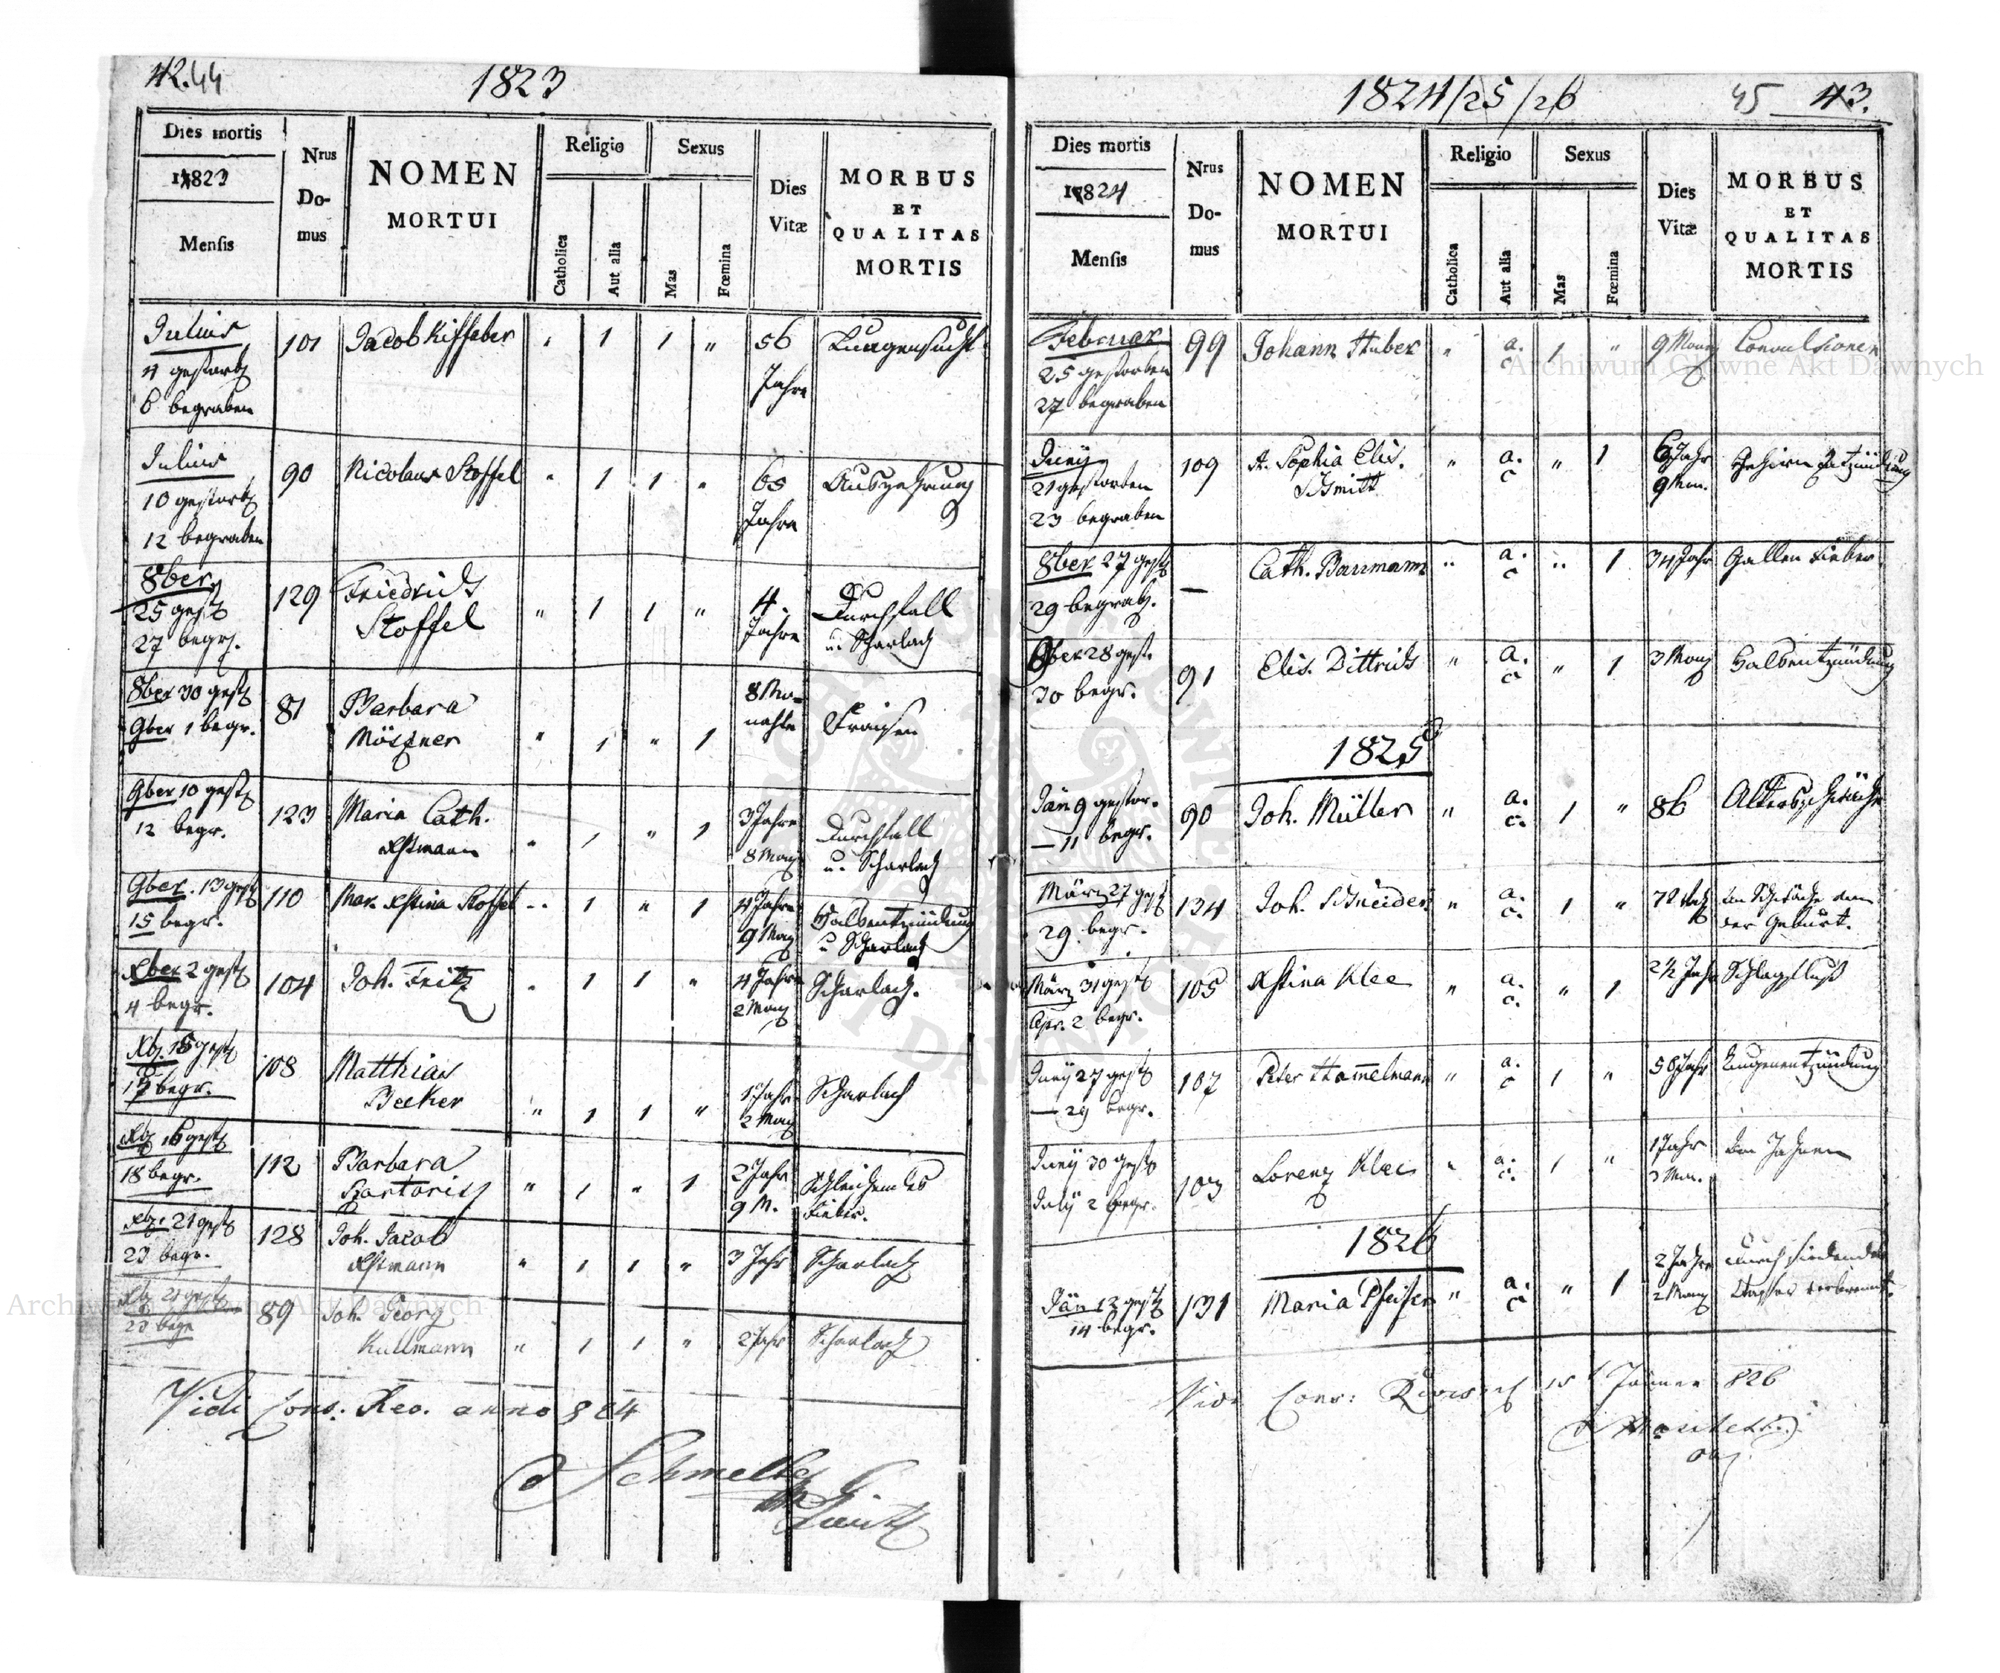 42. 44
1823
Dies mortis
1823
Mensis
Nrus
Do-
mus
NOMEN
MORTUI
Religio
Catholica
Aut alia
Sexus
Mas
Fœmina
Dies
Vitæ
MORBUS
ET
QUALITAS
MORTIS
Julius 101 Jacob Kiffaber " 1 1 " 56 Lungensucht
4 gestorb Jahre
6 begraben
Julius 90 Nicolaus Stoffel " 1 1 " 65 Auszehrung
10 gestorb Jahre
12 begraben
8ber 129 Friedrich 4 Durchfall
25 gest Stoffel " 1 1 " Jahre u. Scharlach
27 begr.
8ber 30 gest 81 Barbara 8 Mo-
9ber 1 begr. Mößner " 1 " 1 nathe Fraisen
9ber 10 gest 123 Maria Cath. 3 Jahre Durchfall
12 begr. Xstmann " 1 " 1 8 Mon u. Scharlach
9ber. 13 gest 110 Mar. Xstina Stoffel " 1 " 1 4 Jahre Halsentzündung
15 begr. 9 Mon u Scharlach
Xber 2 gest 104 Joh. Fritz " 1 1 " 4 Jahre Scharlach.
4 begr. 2 Mon
Xb. 15 gest 108 Matthias 1 Jahr Scharlach
17 begr. Becker " 1 1 " 2 Mon
Xb 16 gest 112 Barbara 2 Jahr Schleichendes
18 begr. Sartorius " 1 " 1 9 M. Fieber.
Xb. 21 gest 128 Joh. Jacob
23 begr. Xstmann " 1 1 " 3 Jahr Scharlach
Xb 21 gest 89 Joh. Georg
23 begr Kullmann " 1 1 " 2 Jahr Scharlach
Vidi Cons. Rev. anno 824
Schmelz
1824/25/26
45 43.
Dies mortis
1824
Mensis
Nrus
Do-
mus
NOMEN
MORTUI
Religio
Catholica
Aut alia
Sexus
Mas
Fœmina
Dies
Vitæ
MORBUS
ET
QUALITAS
MORTIS
Februar 99 Johann Huber " a. c 1 " 9 Mon Convulsionen
25 gestorben
27 begraben
Juny 109 A. Sophia Elis. " a. c " 1 6 Jahr Gehirn Entzündung
21 gestorben Schmitt 9 Mon.
23 begraben
8ber 27 gest — Cath. Baumann " a. c " 1 34 Jahr Gallen Fieber
29 begrab.
9ber 28 gest. 91 Elis. Dittrich " a. c " 1 3 Mon Halsentzündung
30 begr.
1825
Jän 9 gestor. 90 Joh. Müller " a. c. 1 " 86 Altersschwäche
— 11 begr.
März 27 gest 134 Joh. Schneider " a. c. 1 " 72
29. begr. der Geburt.
März 31 gest 105 Xstina Klee " a. c. " 1 2½ Jahr Schlagfluß
Apr. 2 begr.
Juny 27 gest 107 Peter Ham̄elmann " a. c 1 " 58 Jahr Lungenentzündung
— 29 begr.
Juny 30 gest 103 Lorenz Klee " a. c. 1 " 1 Jahr Von Zahnen
July 2 begr. 3 Mon.
1826
Jän 12 gest 131 Maria Pfeiffer " a. c " 1 2 Jahre durch siedendes
14 begr. 2 Mon Wasser verbrennt.
15 Jänner 826
Archiwum Główne Akt Dawnych
Archiwum Główne Akt Dawnych